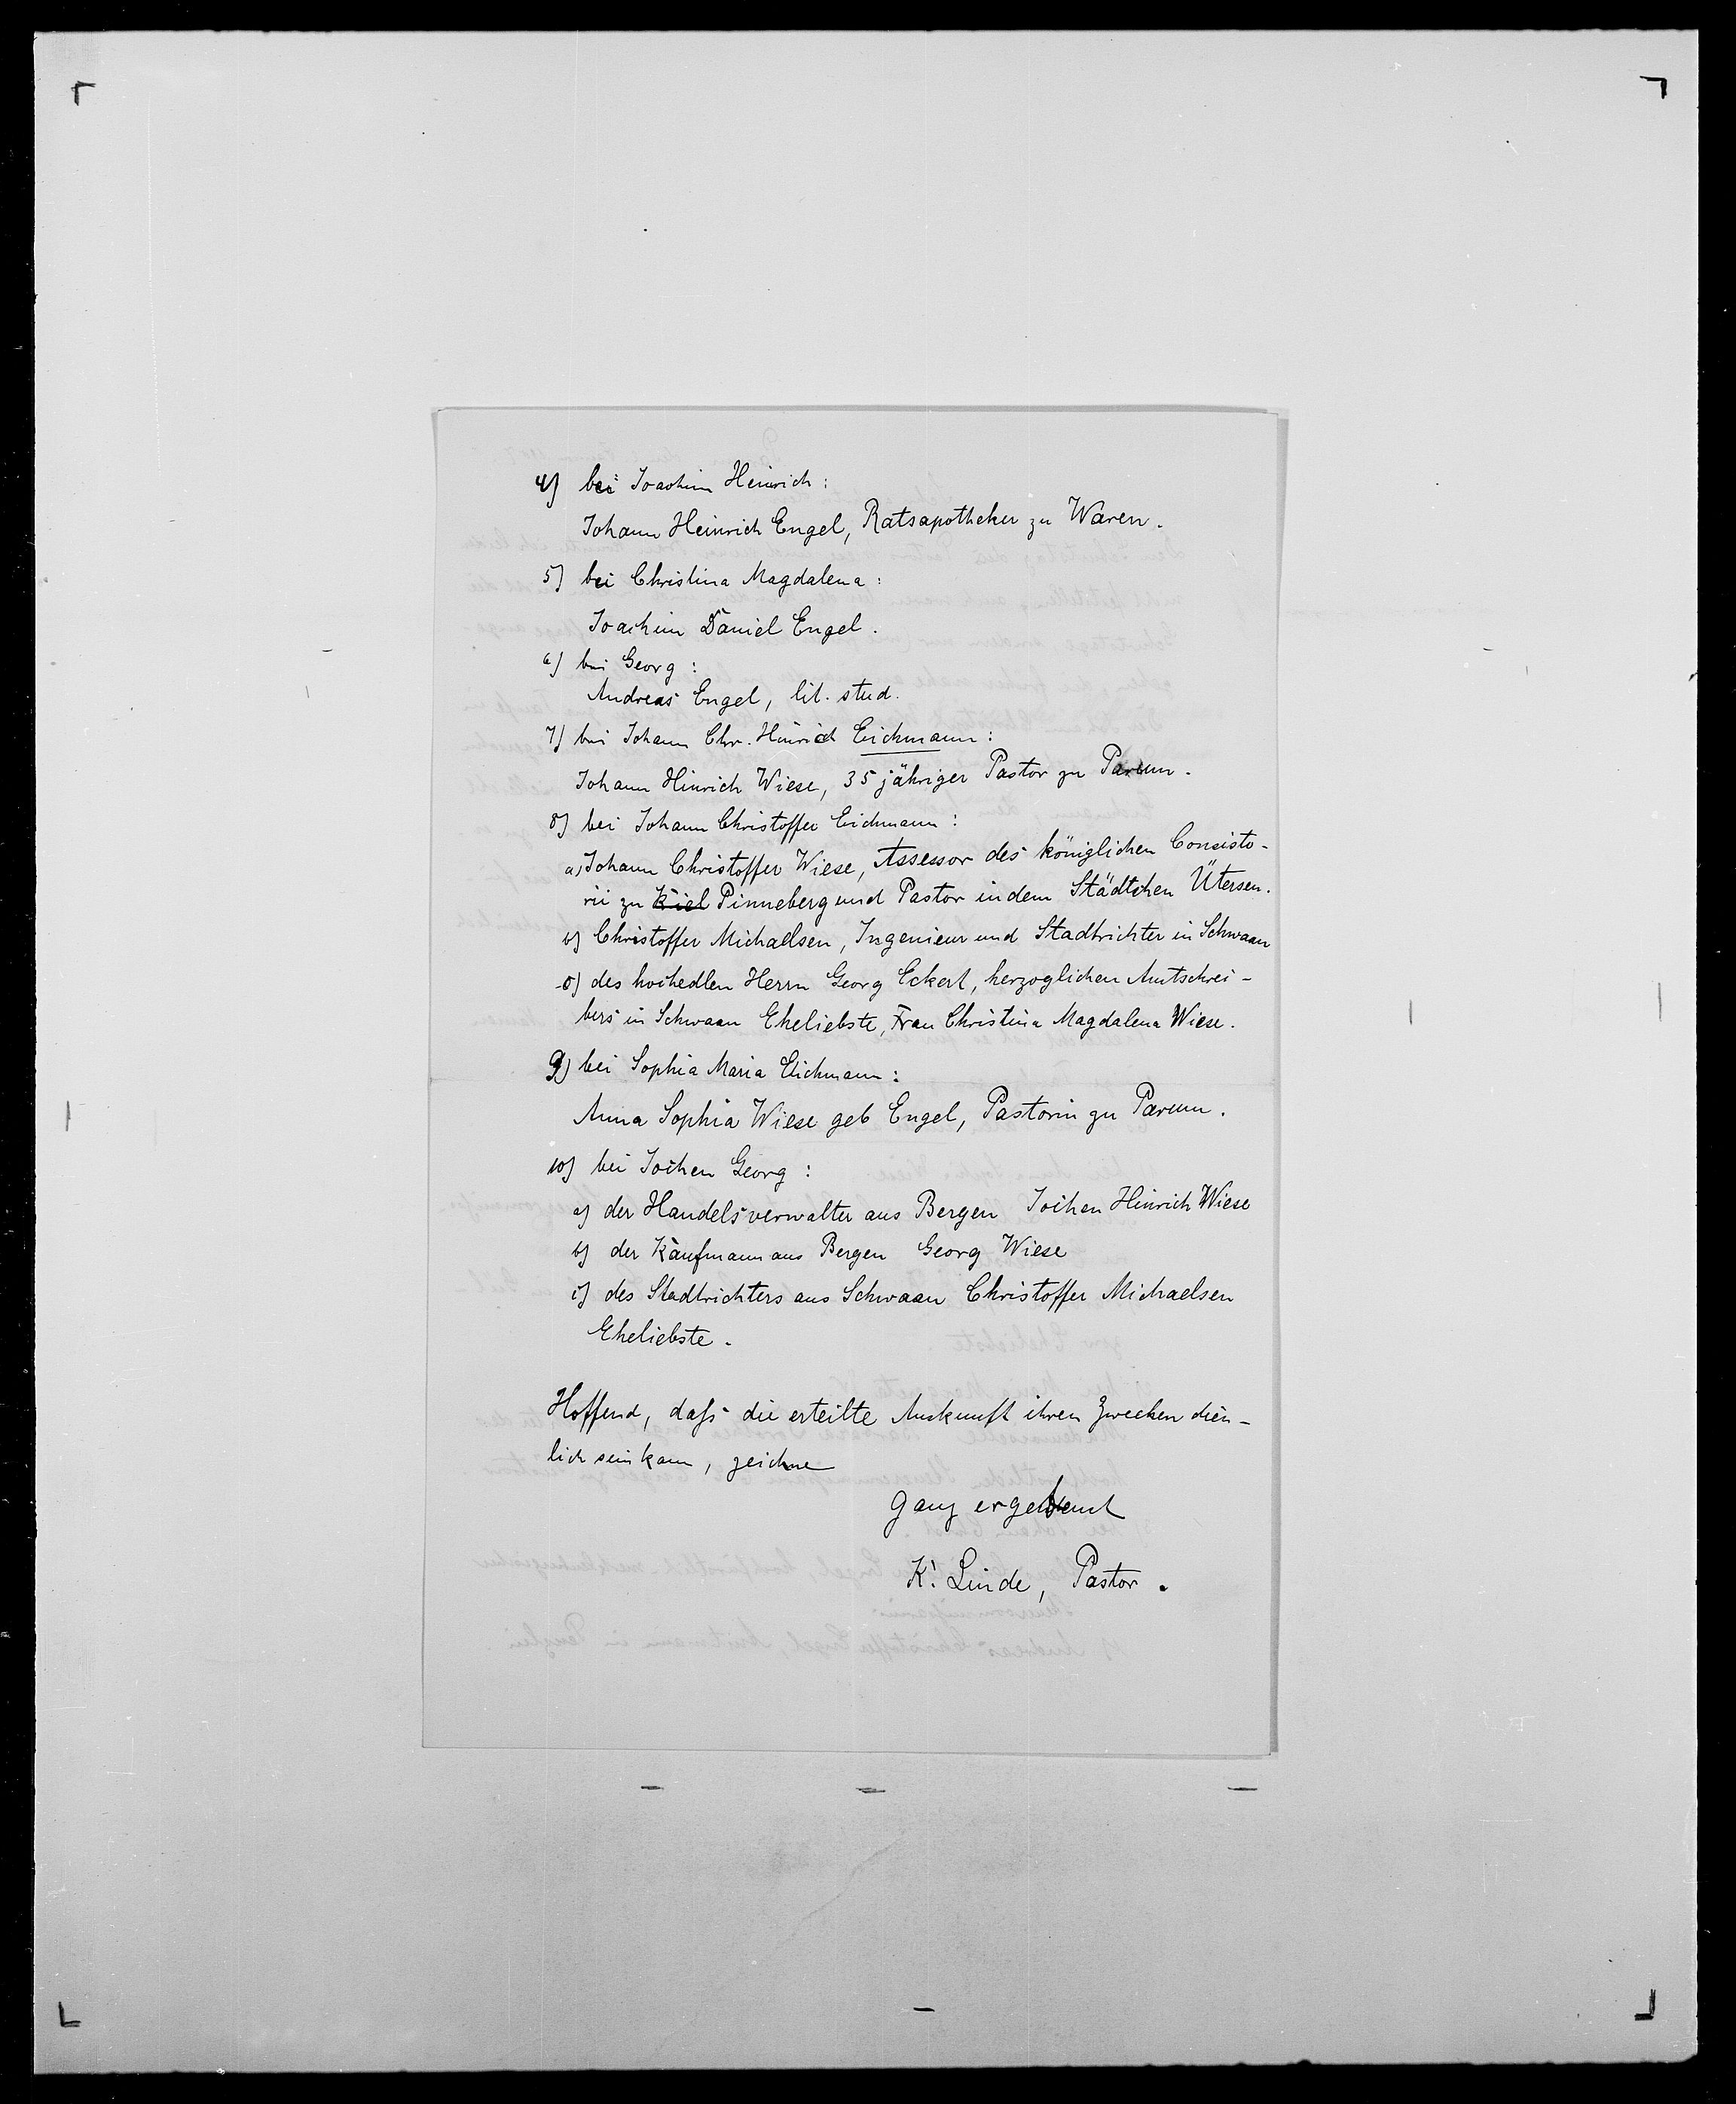 4) bei Joachim Heinrich:
Johann Heinrich Engel, Ratsapotheker zu Waren.
5) bei Christina Magdalena:
Joachim Daniel Engel.
6) bei Georg:
Andreas Engel, lit. stud.
7) bei Johann Chr. Hinrich Eichmann:
Johann Hinrich Wiese, 35 jähriger Pastor zu Parum.
8) bei Johann Christoffer Eichmann:
a) Johann Christoffer Wiese, Assessor des königlichen Consisto-
rii zu Kiel Pinneberg und Pastor in dem Städtchen Ütersen.
b) Christoffer Michaelsen, Ingenieur und Stadtrichter in Schwaan
c) des hochedlen Herrn Georg Eckert, herzoglichen Amtschrei-
bers in Schwaan Eheliebste, Frau Christina Magdalena Wiese.
9) bei Sophia Maria Eichmann:
Anna Sophia Wiese geb Engel, Pastorin zu Parum.
10) bei Jochen Georg:
a) der Handelsverwalter aus Bergen Jochen Hinrich Wiese
b) der Kaufmann aus Bergen Georg Wiese
c) des Stadtrichters aus Schwaan Christoffer Michaelsen
Eheliebste.
Hoffend, daß die erteilte Auskunft ihren Zwecken dien-
lich sein kann, zeichne
ganz ergebenst
K. Linde, Pastor.